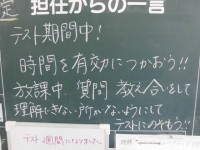 定
担任からの一言
テスト期間中!
時間を有効につかおう!!
放課中 質問 教え合いをして
理解できない所がないようにして
テストにのぞもう!!
テスト週間になりました